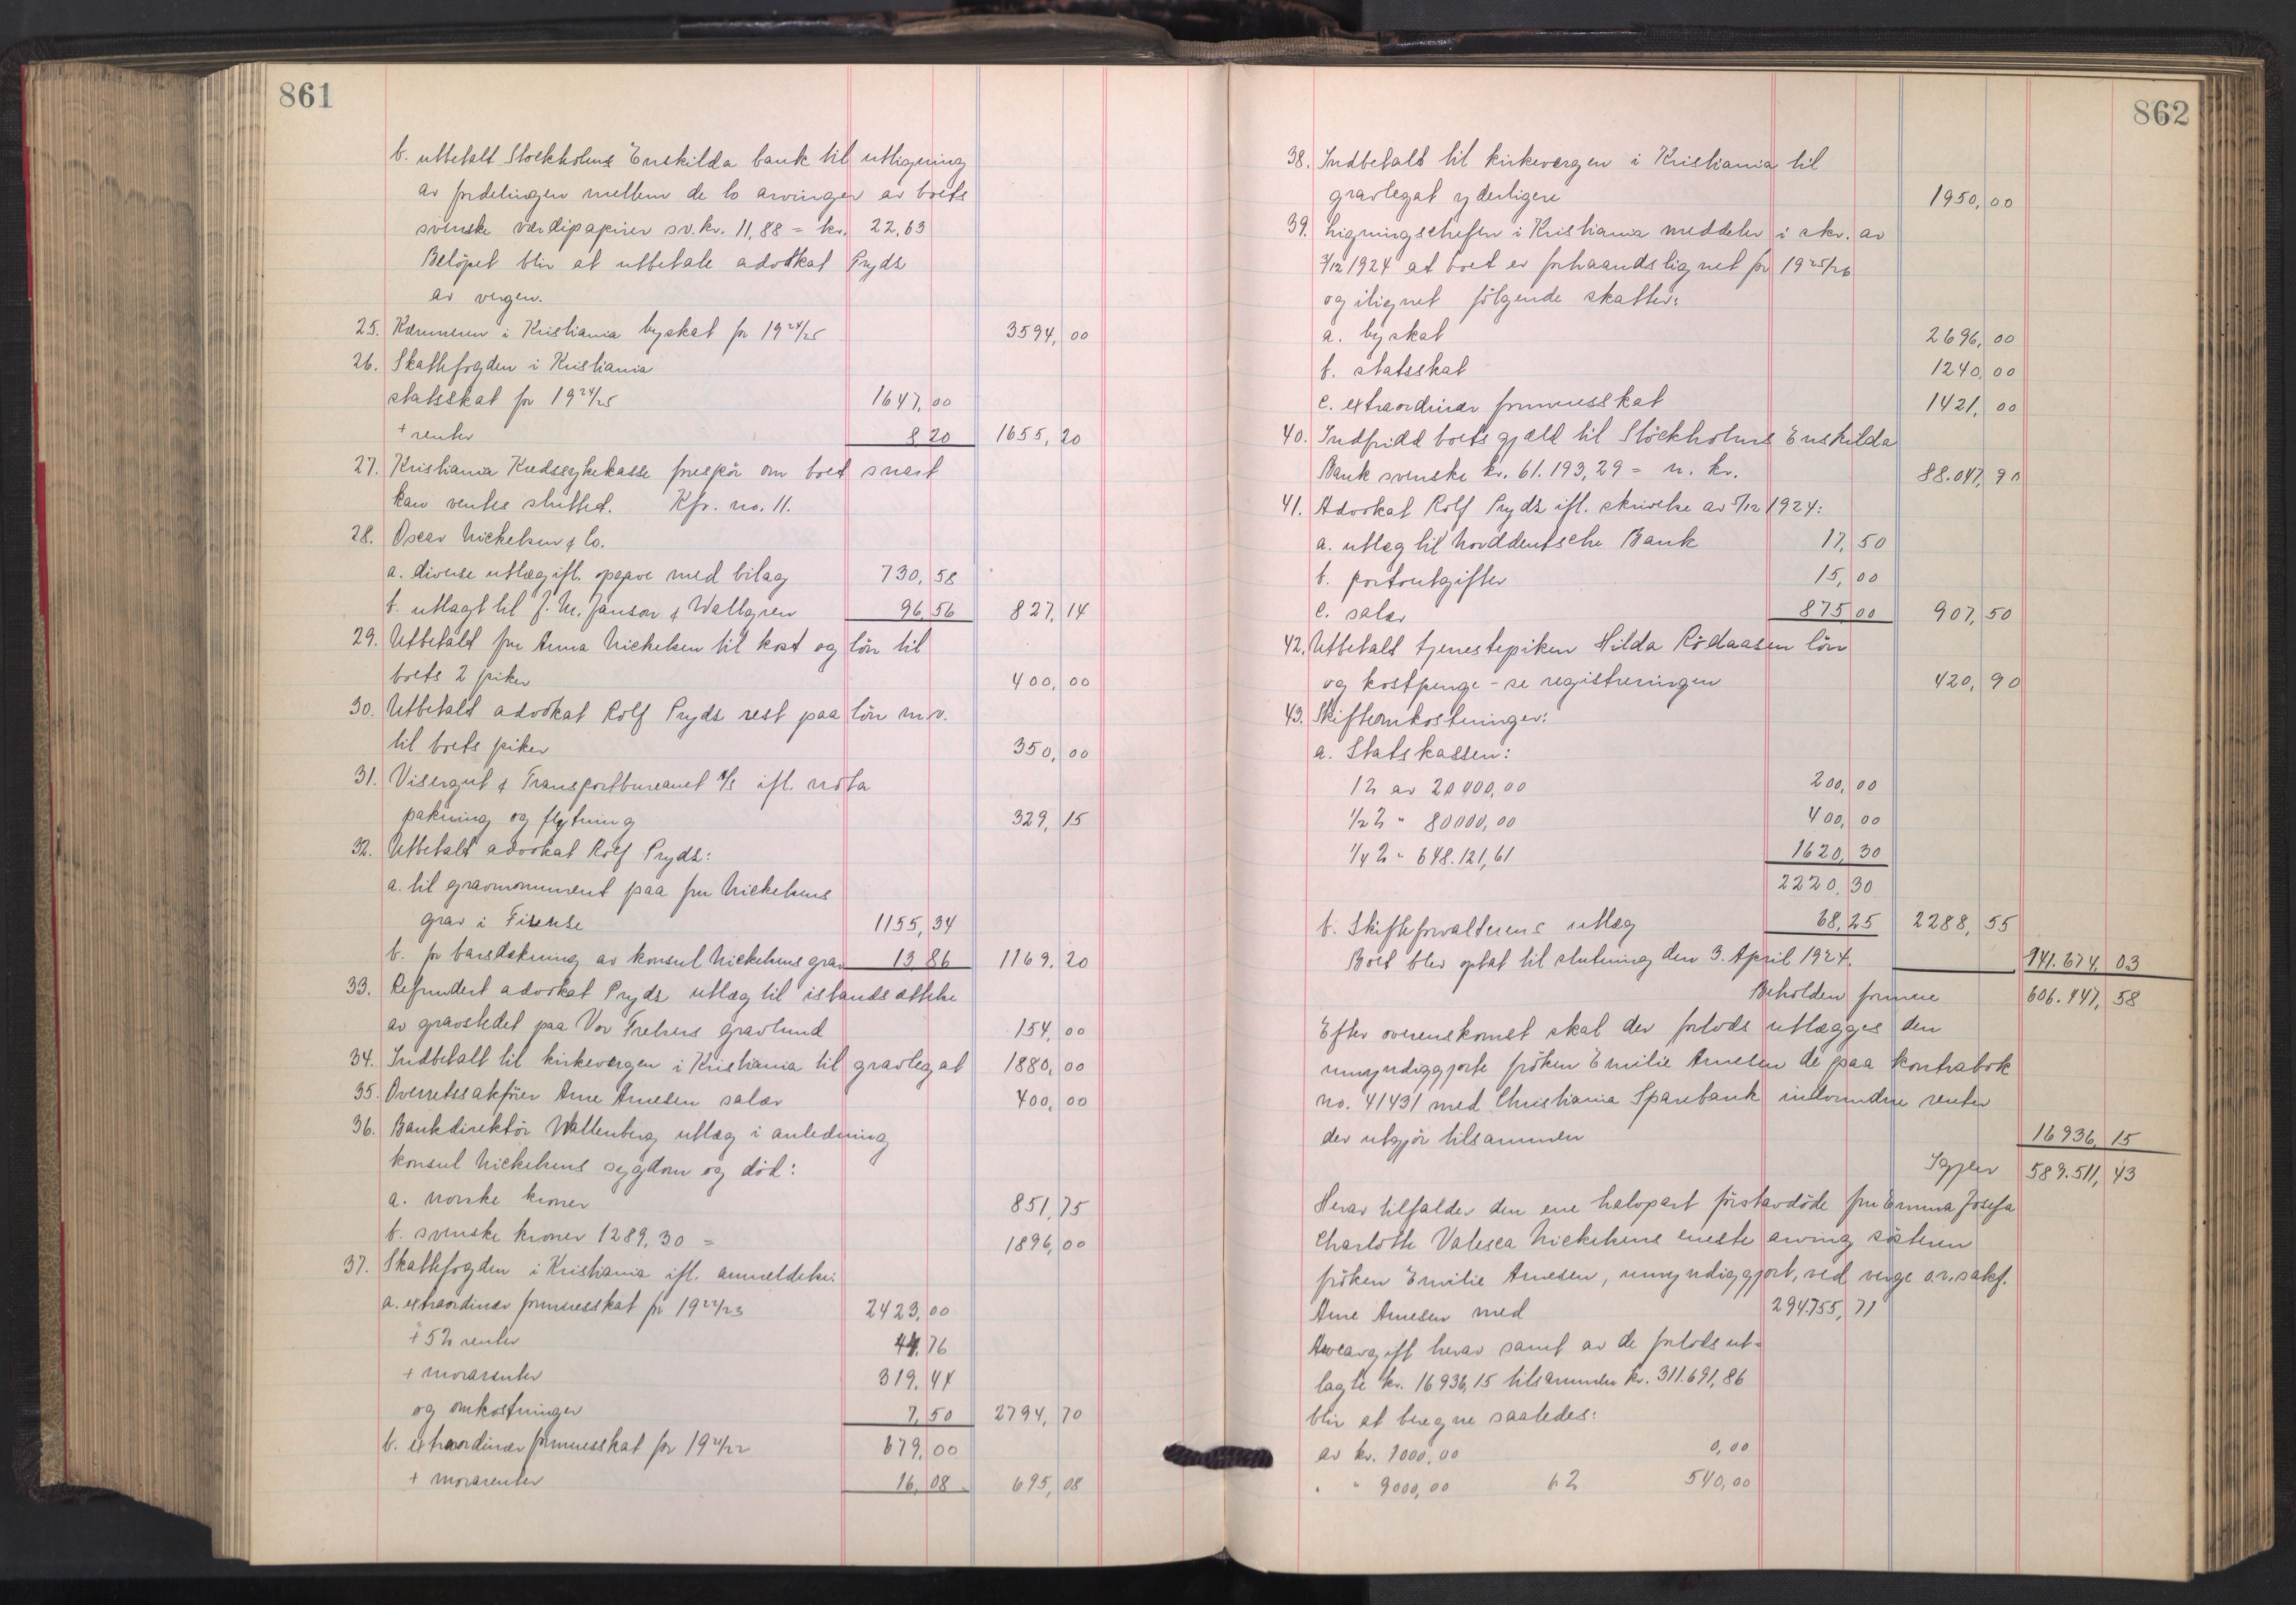 861
b. utbetalt Stockholms Enskilda bank til utligning
av fordelingen mellem de to arvinger av boets
svenske værdipapirer sv.kr. 11,88 = kr. 22,63
Beløpet blir at utbetale advokat Pryds
av vergen.
25. Kæmneren i Kristiania byskat for 1924/25 3594,00
26. Skattefogden i Kristiania
statsskat for 1924/25 1647,00
+ renter 8 20 1655,20
27. Kristiania Kredssykekasse forespør om boet snart
kan ventes sluttet. Kfr. no. 11.
28. Oscar Nickelsen & Co.
a. diverse utlæg ifl. opgave med bilag 730,58
b. utlagt til J. M. Janson & Wallgren 96,56 827,14
29. Utbetalt fru Anna Nickelsen til kost og løn til
boets 2 piker 400,00
30. Utbetalt advokat Rolf Pryds rest paa løn m.v.
til boets piker 350,00
31. Visergut & Transportbureauet A/S ifl. nota
pakning og flytning 329,15
32. Utbetalt advokat Rolf Pryds:
a. til gravmonument paa fru Nickelsens
grav i 1155,34
b. for bardækning av konsul Nickelsens grav 13,86 1169,20
33. Refundert advokat Pryds utlæg til istandsættelse
av gravstedet paa Vor Frelsers gravlund 154,00
34. Indbetalt til kirkevergen i Kristiania til gravlegat 1880,00
35. Overretssakfører Arne Arnesen salær 400,00
36. Bankdirektør Wallenberg utlæg i anledning
konsul Nickelsens sygdom og død:
a. norske kroner 851,75
b. svenske kroner 1289,30 = 1896,00
37. Skattefogden i Kristiania ifl. anmeldelse:
a. extraordinær formuesskat for 1922/23 2423,00
+ 5% renter 44,76
+ morarenter 319,44
og omkostninger 7,50 2794,70
b. extraordinær formuesskat for 1921/22 679,00
+ morarenter 16,08 695,08
862
38. Indbetalt til kirkevergen i Kristiania til
gravlegat yderligere 1950,00
39. Ligningschefen i Kristiania meddeler i skr. av
3/12 1924 at boet er forhaandslignet for 1925/26
og ilignet følgende skatter:
a. byskat 2696,00
b. statsskat 1240,00
c. extraordinær formuesskat 1421,00
40. Indfridd boets gjæld til Stockholms Enskilda
Bank svenske kr. 61.193,29 = n. kr. 88.047,90
41. Advokat Rolf Pryds ifl. skrivelse av 5/12 1924:
a. utlæg til Norddeutsche Bank 17,50
b. portoutgifter 15,00
c. salær 875,00 907,50
42. Utbetalt tjenestepiken Hilda Rödaasen løn
og kostpenge - se registreringen 420,90
43. Skifteomkostninger:
a. Statskassen:
1% av 20000,00 200,00
1/2% " 80000,00 400,00
1/4% " 648.121,61 1620,30
2220,30
b. Skifteforvalterens utlæg 68,25 2288,55
Boet blev optat til slutning den 3. April 1924. 141.674,03
Beholden formue 606.447,58
Efter overenskomst skal der forlods utlægges den
umyndiggjorte frøken Emilie Arnesen de paa kontrabok
no. 41431 med Christiania Sparebank indvundne renter
der utgjør tilsammen 16936,15
Igjen 589.511,43
Herav tilfalder den ene halvpart førstavdøde fru Emma Josefa
Charlotte Valesca Nickelsens eneste arving søsteren
frøken Emilie Arnesen, umyndiggjort, ved verge o.r.sakf.
Arne Arnesen med 294.755,71
Arveavgift herav samt av de forlods ut-
lagte kr. 16936,15 tilsammen kr. 311.691,86
blir at beregne saaledes:
av kr. 1000,00 0,00
" " 9000,00 6% 540,00